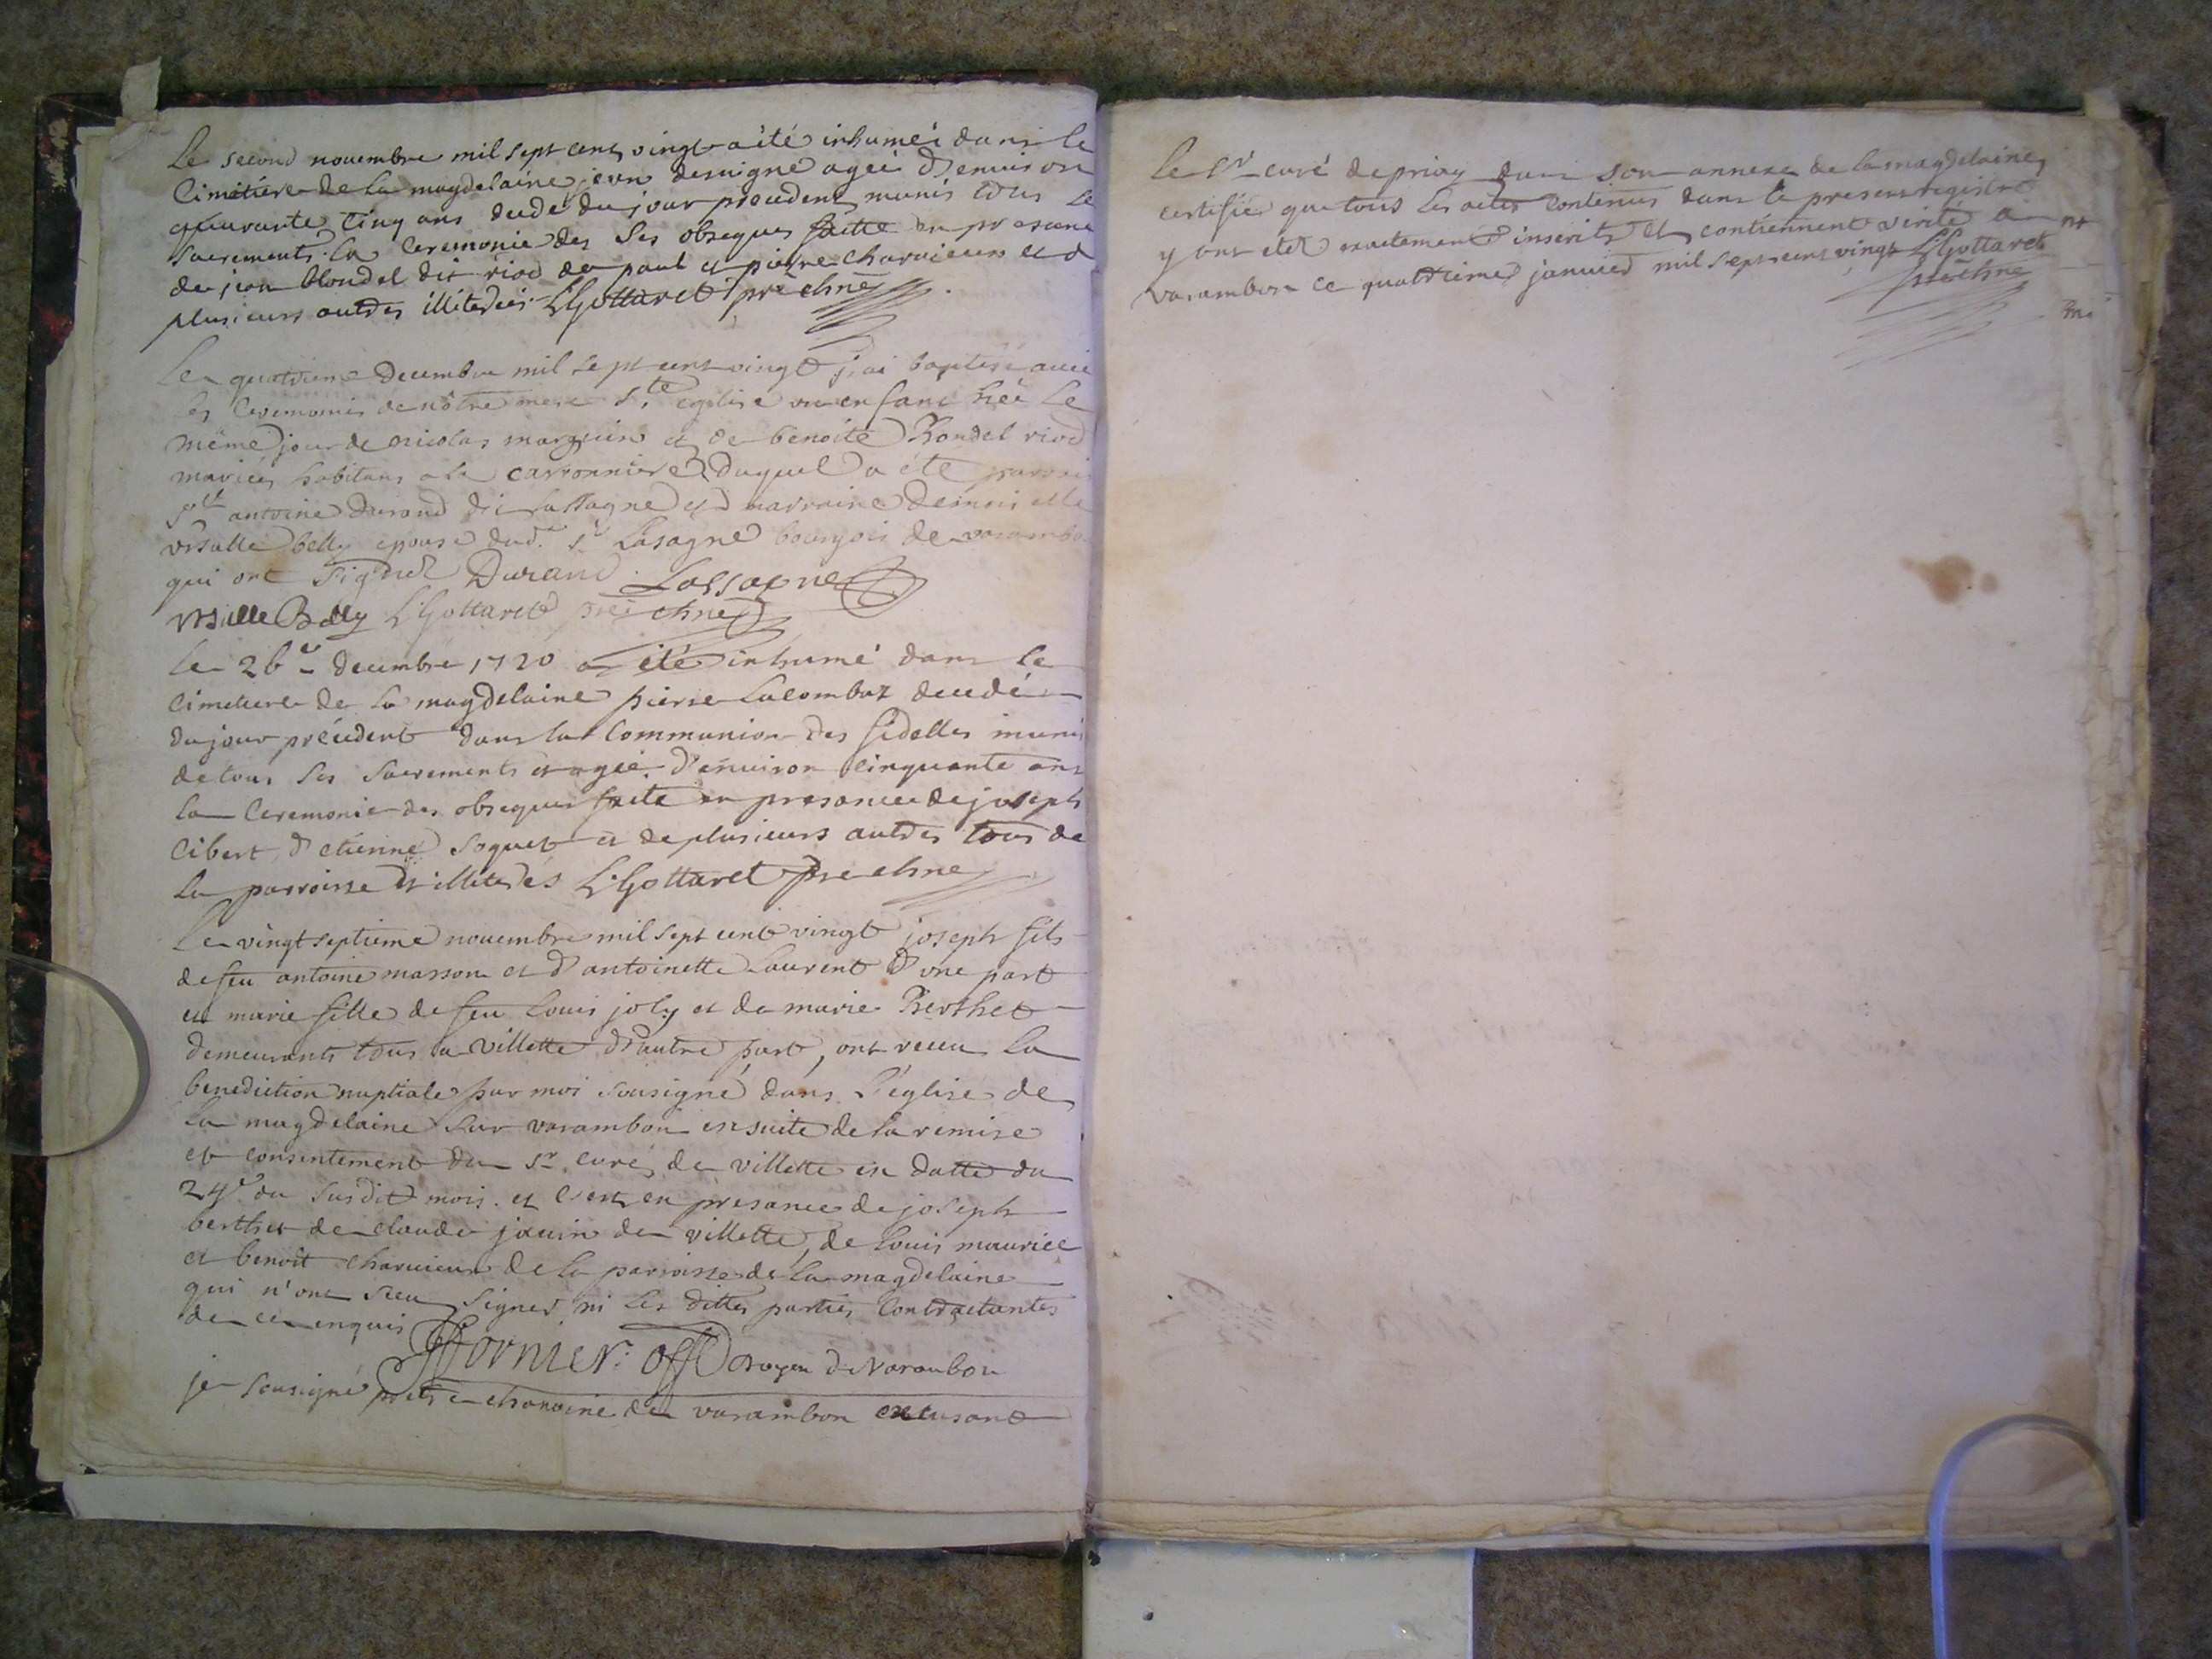 Le second novembre mil sept cent vingt a été inhumeé dans le
Cimetiere de la magdelaine jean desuigne ageé d'enuiron
quarante cinq ans decedé du jour precedent munis tous se
sacrements. la Ceremonie des ses obseques faitte en presance
de jean blondel dit riod de paul et pierre charuieux et d
plusieurs autres illiterées LGottaret pre chne
Le quatrieme decembre mil sept cent vingt j'ai baptisé avec
les Ceremonies de nôtre mere Ste eglise un enfant neé le
même jour de nicolas marguin et de benoite Blondel riod
mariés habitans a la carronniere duquel a été parrain
Sr antoine Durand dit lassagne et marraine demoiselle
Vrsulle belly epouse dud. sr Lasagne bourgois de varambo
qui ont Signez Durand Lassagne
Vrsulle Belly LGottaret pre chne
Le 26e decembre 1720 a été inhumé dans le
Cimetiere de la magdelaine pierre Lacombaz decedé
du jour précédent dans la Communion des fidelles muni
de tous ses sacrements et ageé d'enuiron cinquante ans
la Ceremonie des obseques faite en presance de joseph
Cibert, d'etienne Soquet et de plusieurs autres tous de
la parroisse et illiterés LGottaret pre chne
Le vingt septieme nouembre mil sept cent vingt joseph fils
de feu antoine masson et d'antoinette Laurent d'une part
et marie fille de feu Louis joly et de marie Berthet
demeurants tous a Villette d'autre part, ont receu la
benediction nuptiale par moi sousigné dans l'eglise de
la magdelaine sur varambon ensuite de la remise
et consentement du Sr. curé de villette en datte du
24e du susdit mois. et c'est en presance de joseph
berthet de claude jauin de villette, de Louis maurice
et benoît charuieux de la parroisse de la magdelaine
qui n'ont sceu signer ni les dittes parties Contractantes
de ce enquis
Fornier. off Doyen de Varanbon
je sousigné pretre chanoine de varambon excusant
le Sr curé de priay dans son annexe de la magdelaine,
certifie que tous les actes contenus dans le present registre
y ont etez exactement inserits et contiennent verité a
varambon ce quatrieme januier mil sept cent vingt LGottaret
pre chne